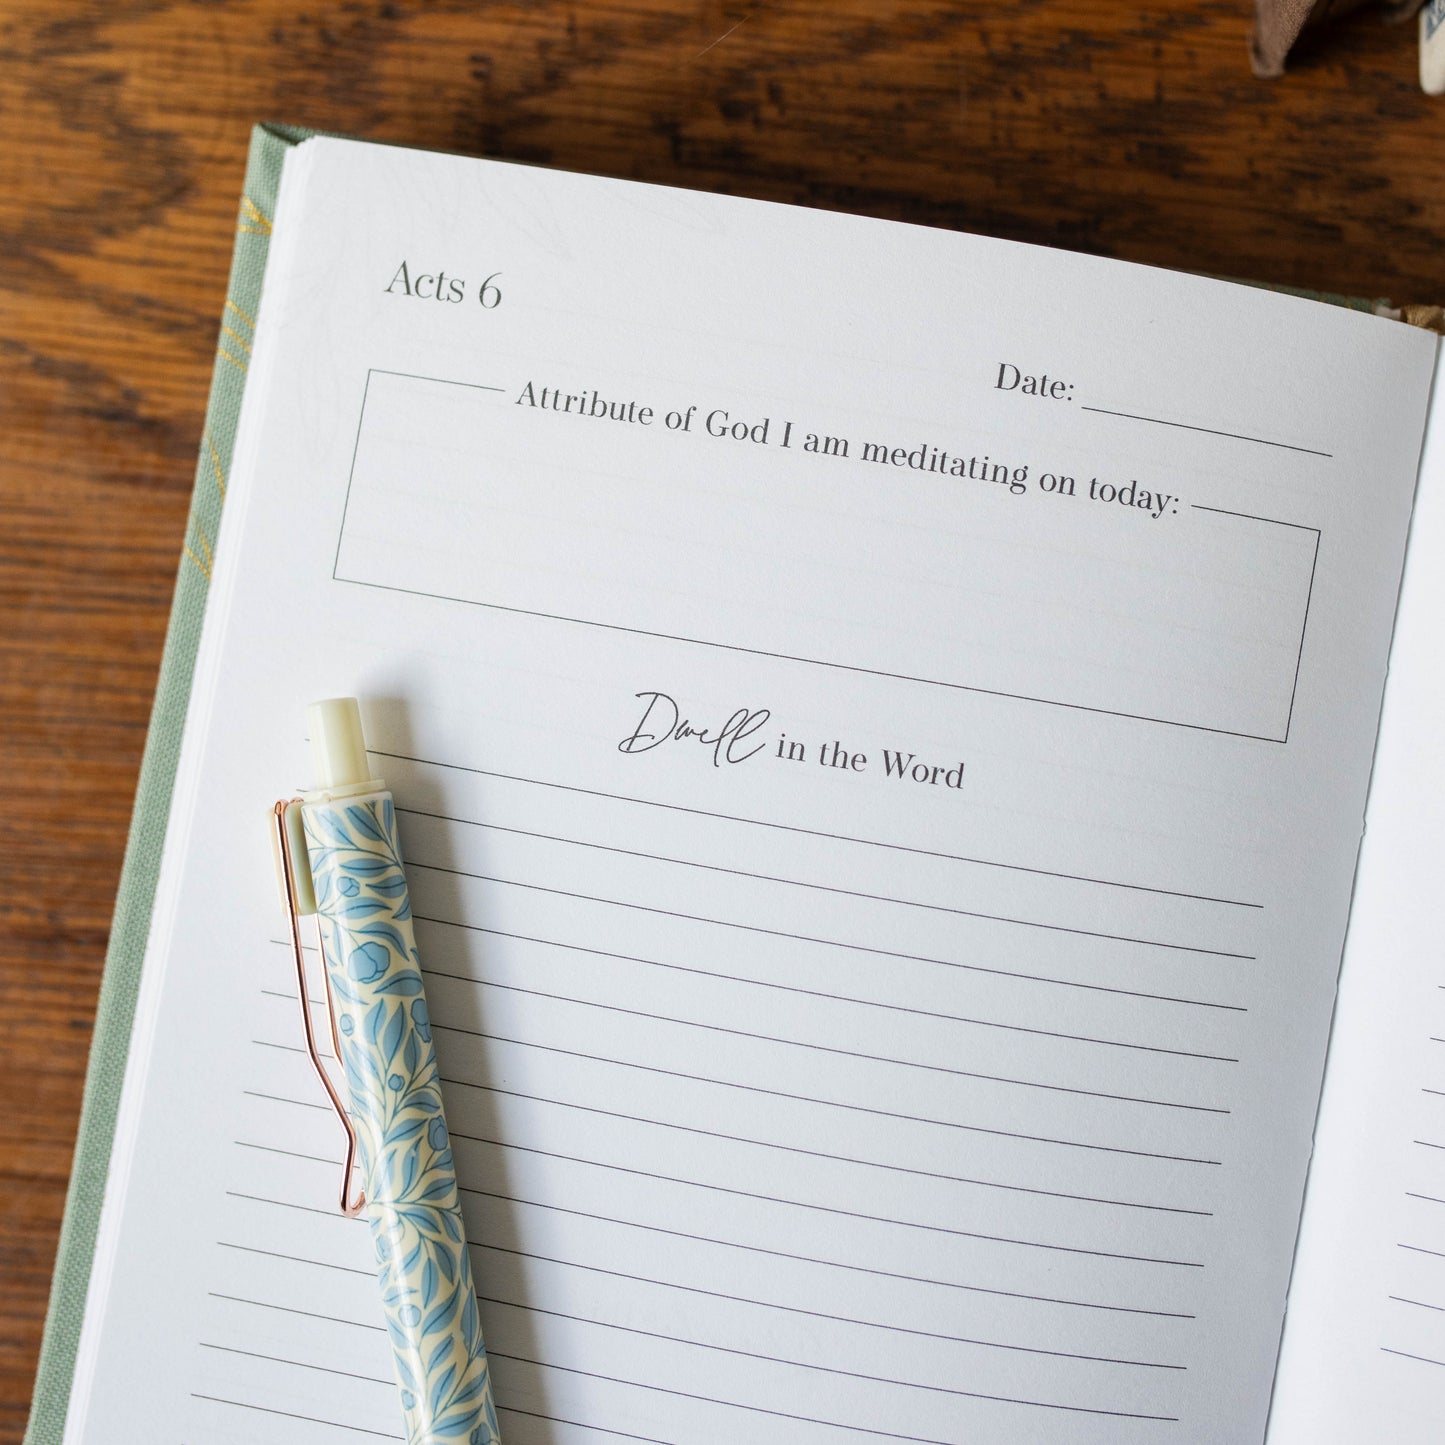 Acts 6
Date:
Attribute of God I am meditating on today:
Dwell in the Word